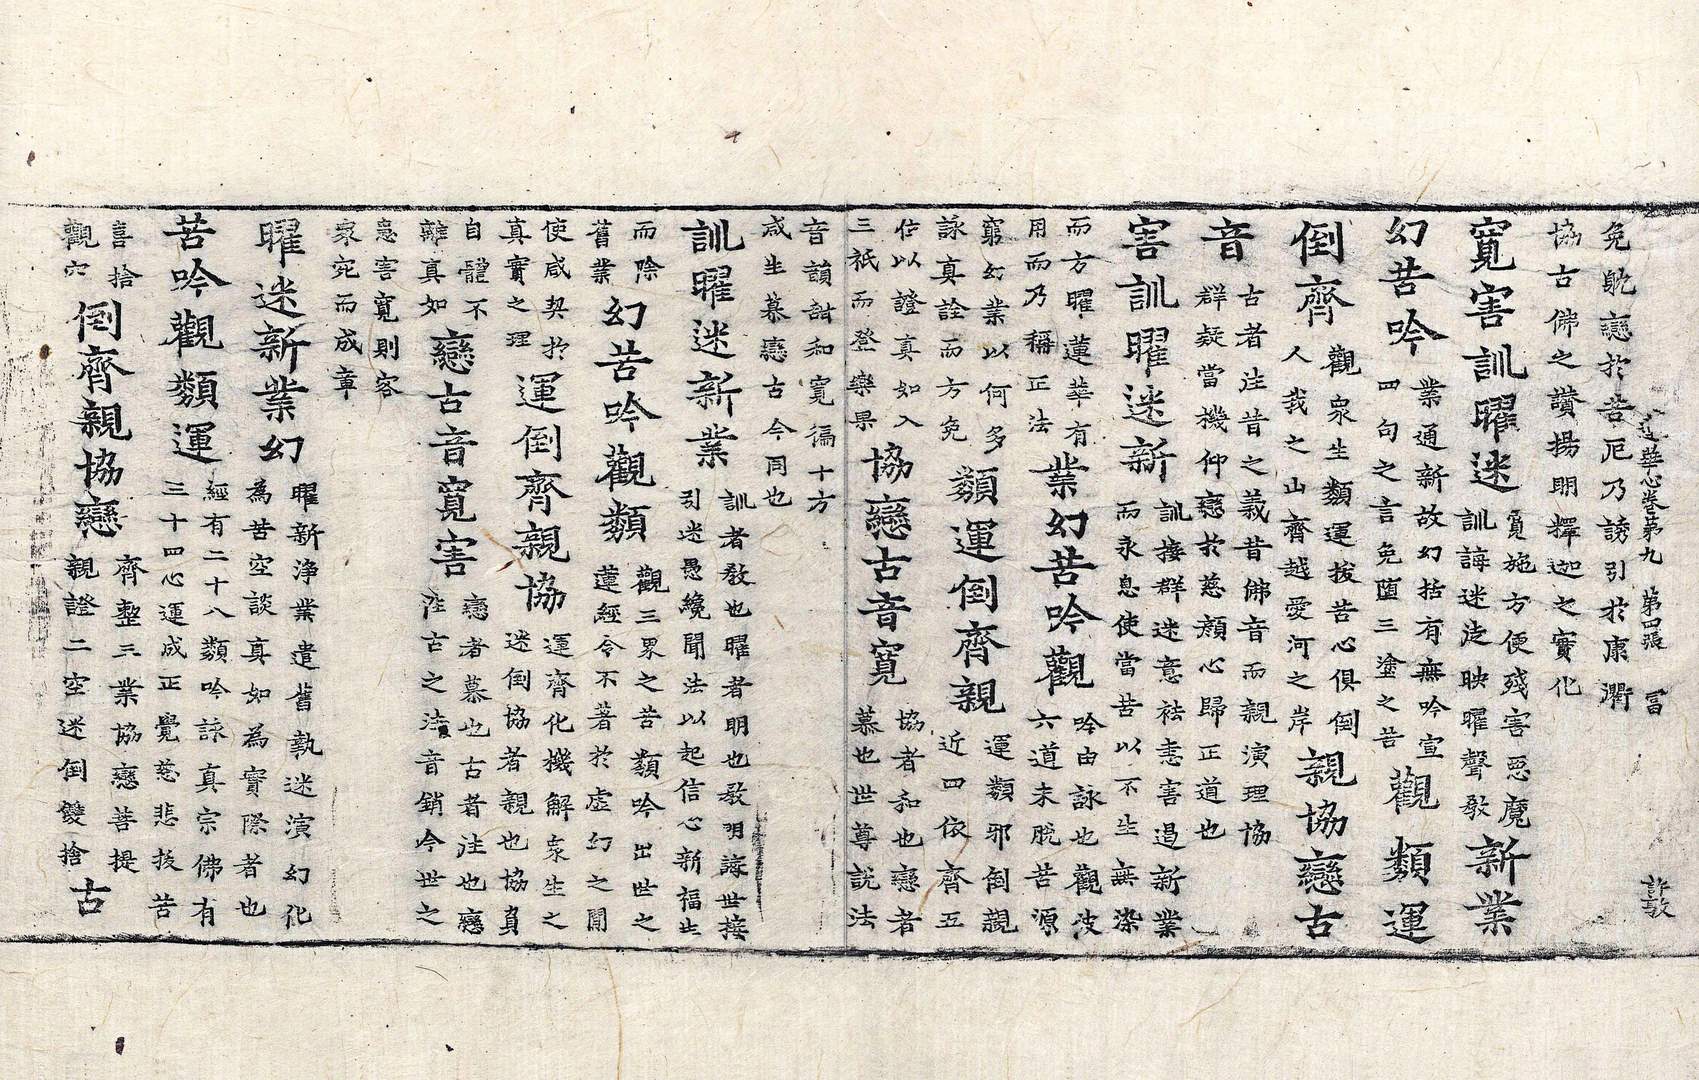 免躭戀於苦厄乃誘引於康衢
蓮華心卷第九　第四張　冨　許敦
協古佛之讚揚明釋迦之實化
寬害訓曜迷
寬施方便殘害惡魔
訓誨迷徒映曜聲敎
新業
幻苦吟
業通新故幻括有無吟宣
四句之言免墮三塗之苦
觀類運
倒齊
觀衆生類運拔苦心俱倒
人我之山齊越愛河之岸
親協戀古
音
古者注昔之義昔佛音而親演理協
群疑當機仰戀於慈顔心歸正道也
害訓曜迷新
訓接群迷意袪恚害遏新業
而永息使當苦以不生無染
而方曜蓮華有
用而乃稱正法
業幻苦吟觀
吟由詠也觀波
六道末脫苦源
窮幻業以何多
詠真詮而方免
類運倒齊親
運類邪倒親
近四依齊五
住以證真如入
三祇而登樂果
協戀古音寬
協者和也戀者
慕也世尊說法
音韻諧和寬徧十方
咸生慕戀古今同也
訓曜迷新業
訓者敎也曜者明也敎明諸世接
引迷愚纔聞法以起信心新福生
而除
舊業
幻苦吟觀類
觀三界之苦類吟出世之
蓮經令不著於虛幻之間
使咸契於
真實之理
運倒齊親協
運齊化機解衆生之
迷倒協者親也協眞
自體不
離真如
戀古音寬害
戀者慕也古者注也戀
注古之法音銷今世之
恚害寬則容
衆宛而成章
曜迷新業幻
曜新淨業遣舊執迷演幻化
為苦空談真如為實際者也
苦吟觀類運
經有二十八類吟詠真宗佛有
三十四心運成正覺慈悲拔苦
喜捨
觀穴
倒齊親協戀
齊整三業協戀菩提
親證二空迷倒雙捨
古